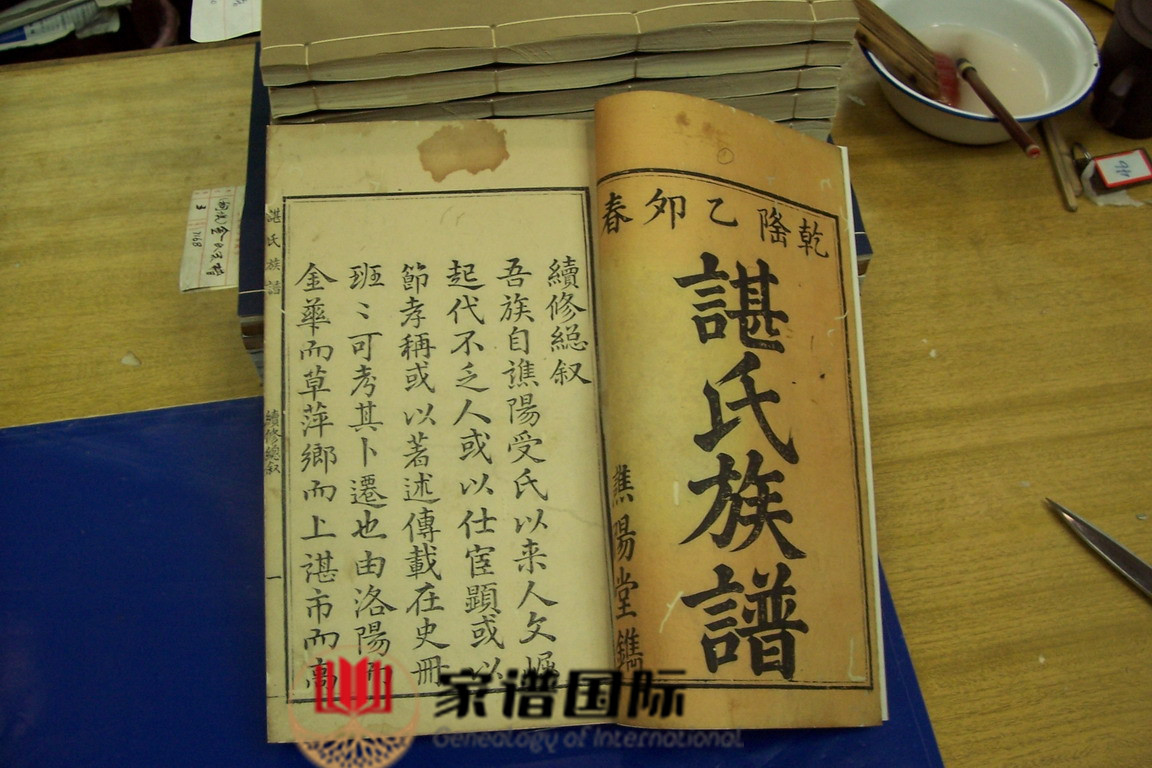 乾隆乙卯春
諶氏族譜
譙陽堂鐫
續修緫叙
吾族自譙陽受氏以来人文崛
起代不乏人或以仕宦顯或以
節孝稱或以著述傳載在史冊
班〻可考其卜遷也由洛陽而
金華而草萍鄉而上湛市而高
諶氏族譜
續修總叙
一
家谱国际
Genealogy of International